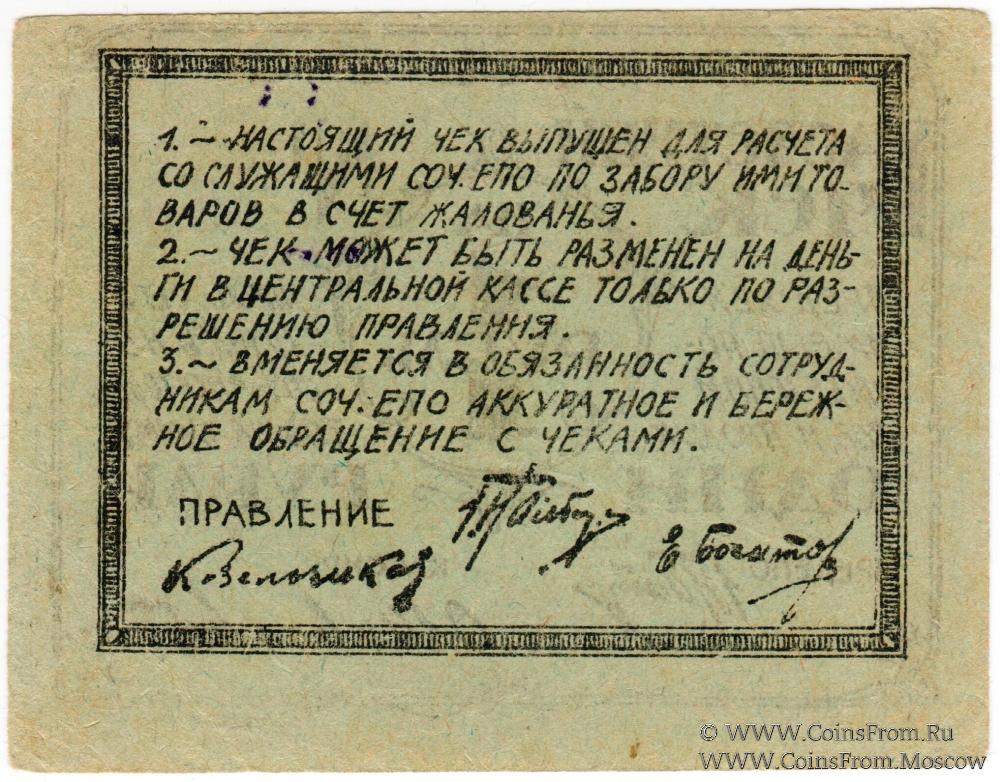 1.~НАСТОЯЩИЙ ЧЕК ВЫПУЩЕН ДЛЯ РАСЧЕТА
СО СЛУЖАЩИМИ СОЧ.ЕПО ПО ЗАБОРУ ИМИ ТО-
ВАРОВ В СЧЕТ ЖАЛОВАНЬЯ.
2.~ЧЕК МОЖЕТ БЫТЬ РАЗМЕНЕН НА ДЕНЬ-
ГИ В ЦЕНТРАЛЬНОЙ КАССЕ ТОЛЬКО ПО РАЗ-
РЕШЕНИЮ ПРАВЛЕНИЯ.
3.~ВМЕНЯЕТСЯ В ОБЯЗАННОСТЬ СОТРУД-
НИКАМ СОЧ.ЕПО АККУРАТНОЕ И БЕРЕЖ-
НОЕ ОБРАЩЕНИЕ С ЧЕКАМИ.
ПРАВЛЕНИЕ
Е Богатов
© WWW.CoinsFrom.Ru
WWW.CoinsFrom.Moscow